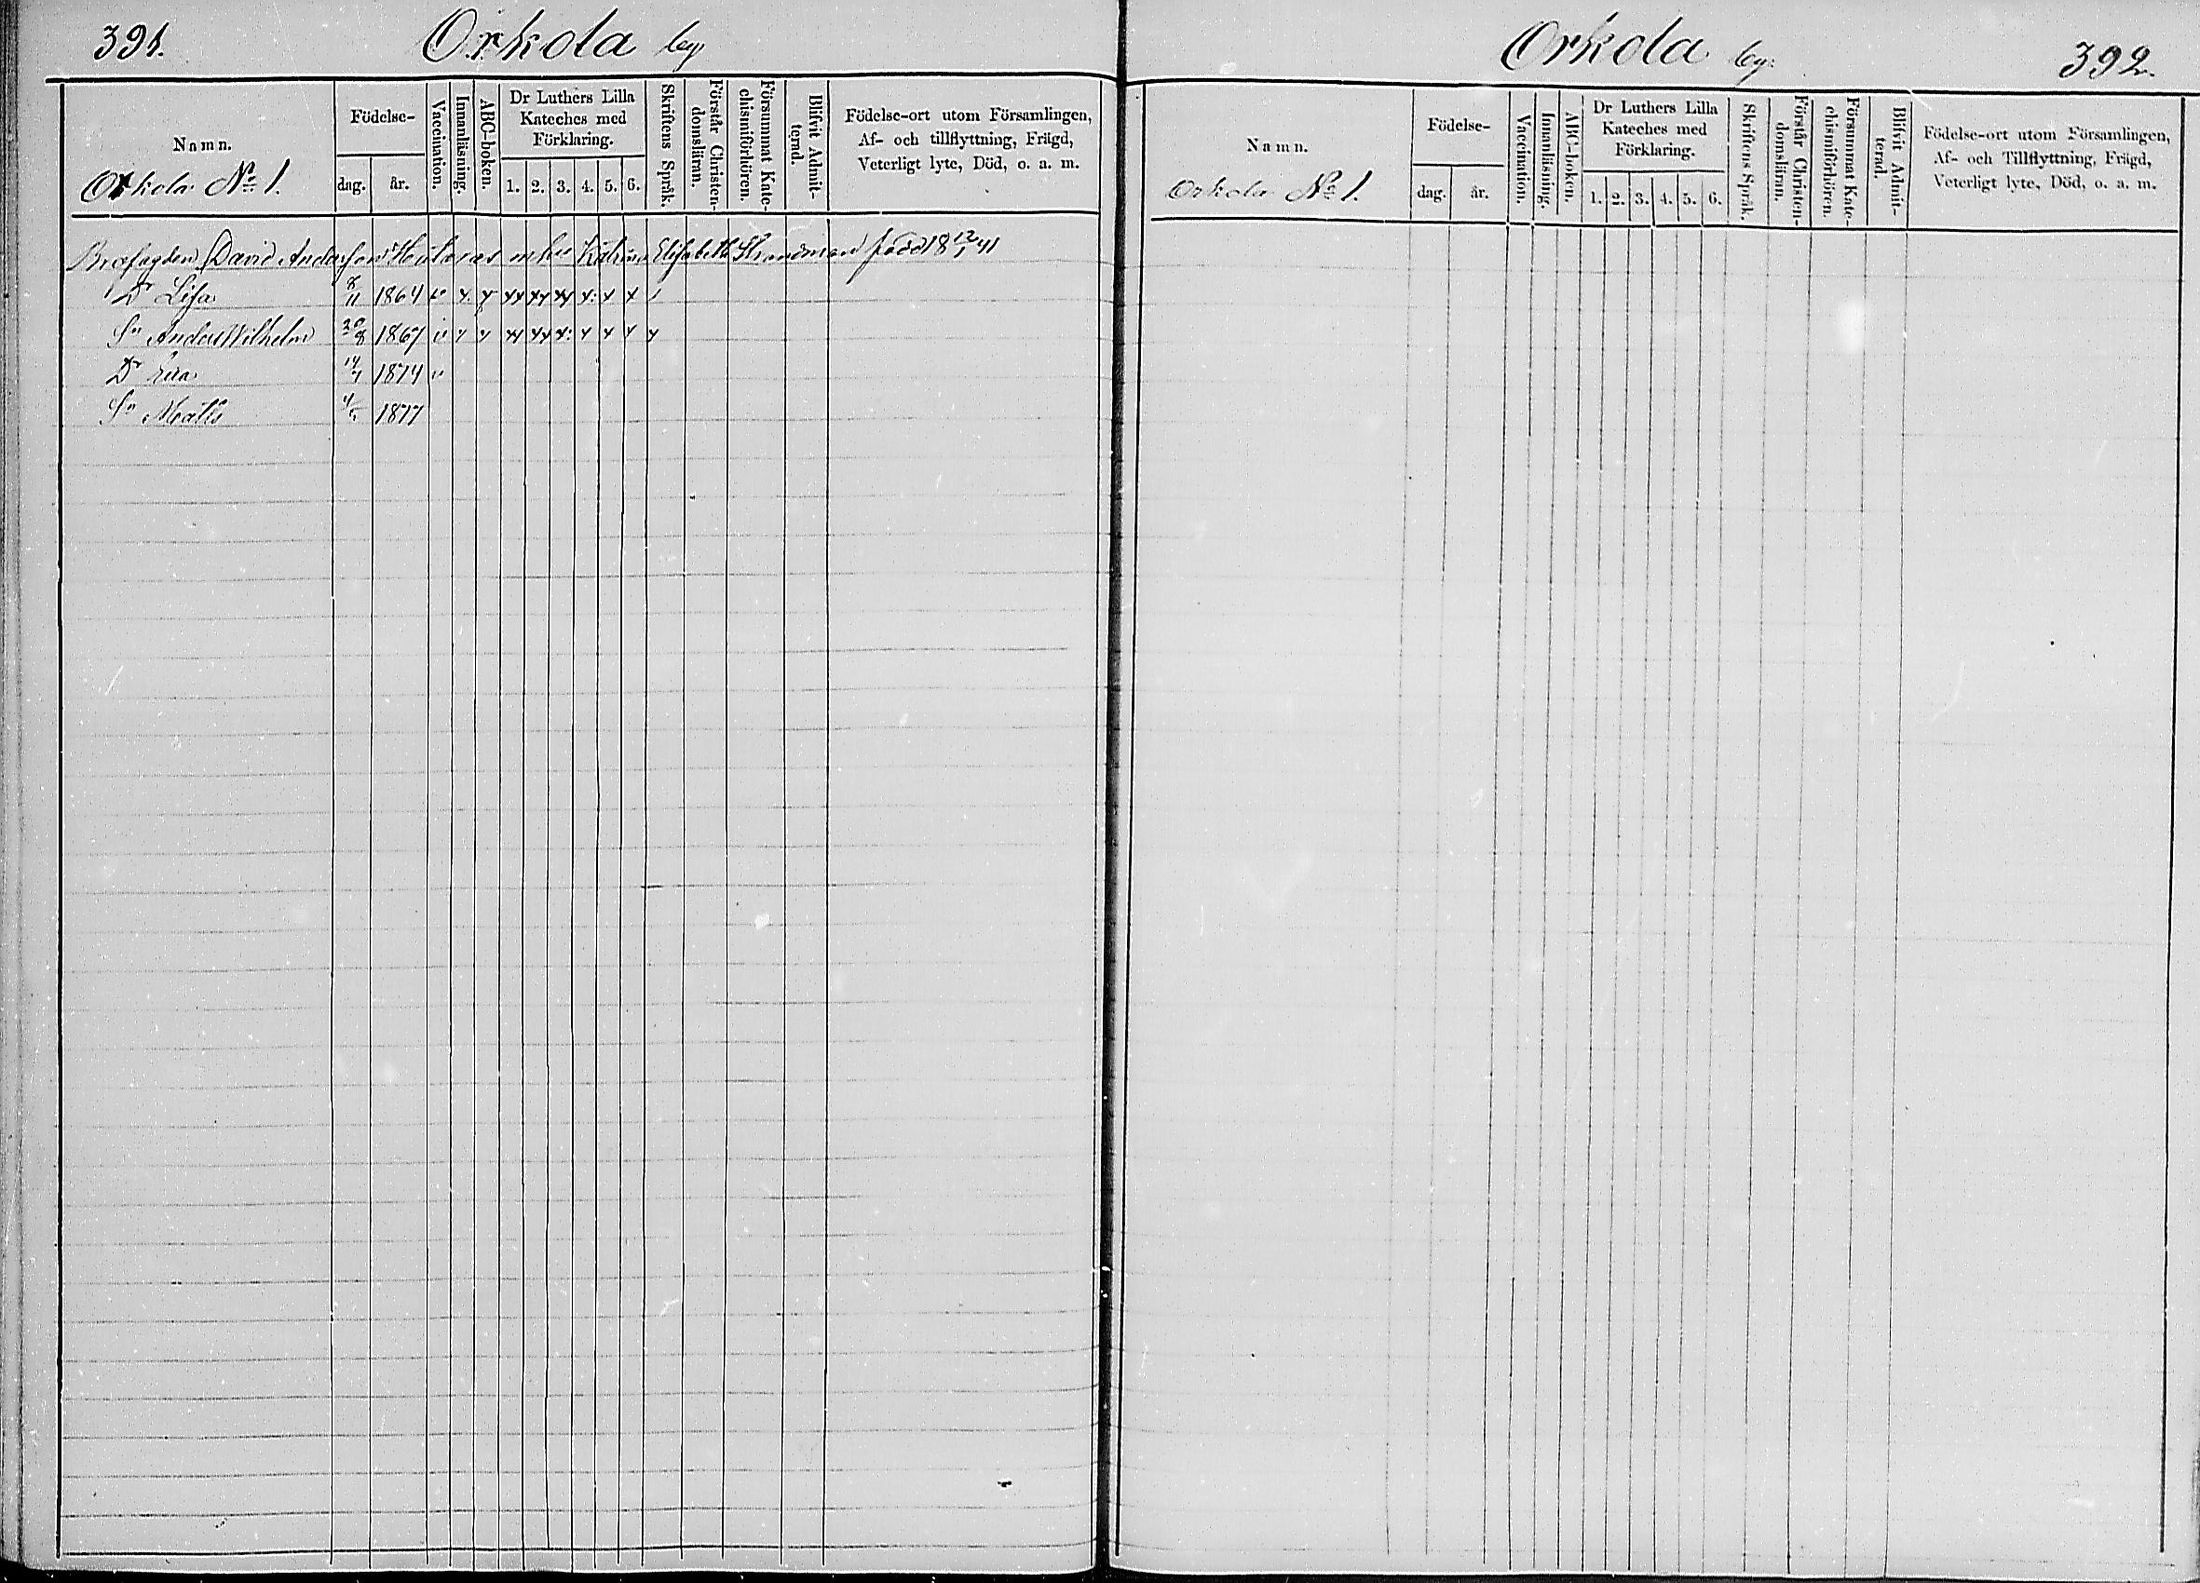 391.
Orkola by
Namn.
Orkola No 1.
Födelse-
dag.
år.
Vaccination.
Innanläsning.
ABC-boken.
Dr Luthers Lilla
Kateches med
Förklaring.
1. 2. 3. 4. 5. 6.
Skriftens Språk.
Förstår Christen-
domsläran.
Försummat Kate-
chismiförhören.
Blifvit Admit-
terad.
Födelse-ort utom Församlingen,
Af- och tillflyttning, Frägd,
Veterligt lyte, Död, o. a. m.
David Andersson enka Elisabeth född 18 12/1 41
Dr Lisa 8/11 1864 v
Sn Anders Wilhelm 20/8 1867 v
Dr 14/1 1874 v
Sn Matts 1877
Orkola by:
392.
Namn.
Orkola No 1.
Födelse-
dag.
år.
Vaccination.
Innanläsning.
ABC-boken.
Dr Luthers Lilla
Kateches med
Förklaring.
1. 2. 3. 4. 5. 6.
Skriftens Språk.
Förstår Christen-
domsläran.
Försummat Kate-
chismiförhören.
Blifvit Admit-
terad.
Födelse-ort utom Församlingen,
Af- och Tillflyttning, Frägd,
Veterligt lyte, Död, o. a. m.